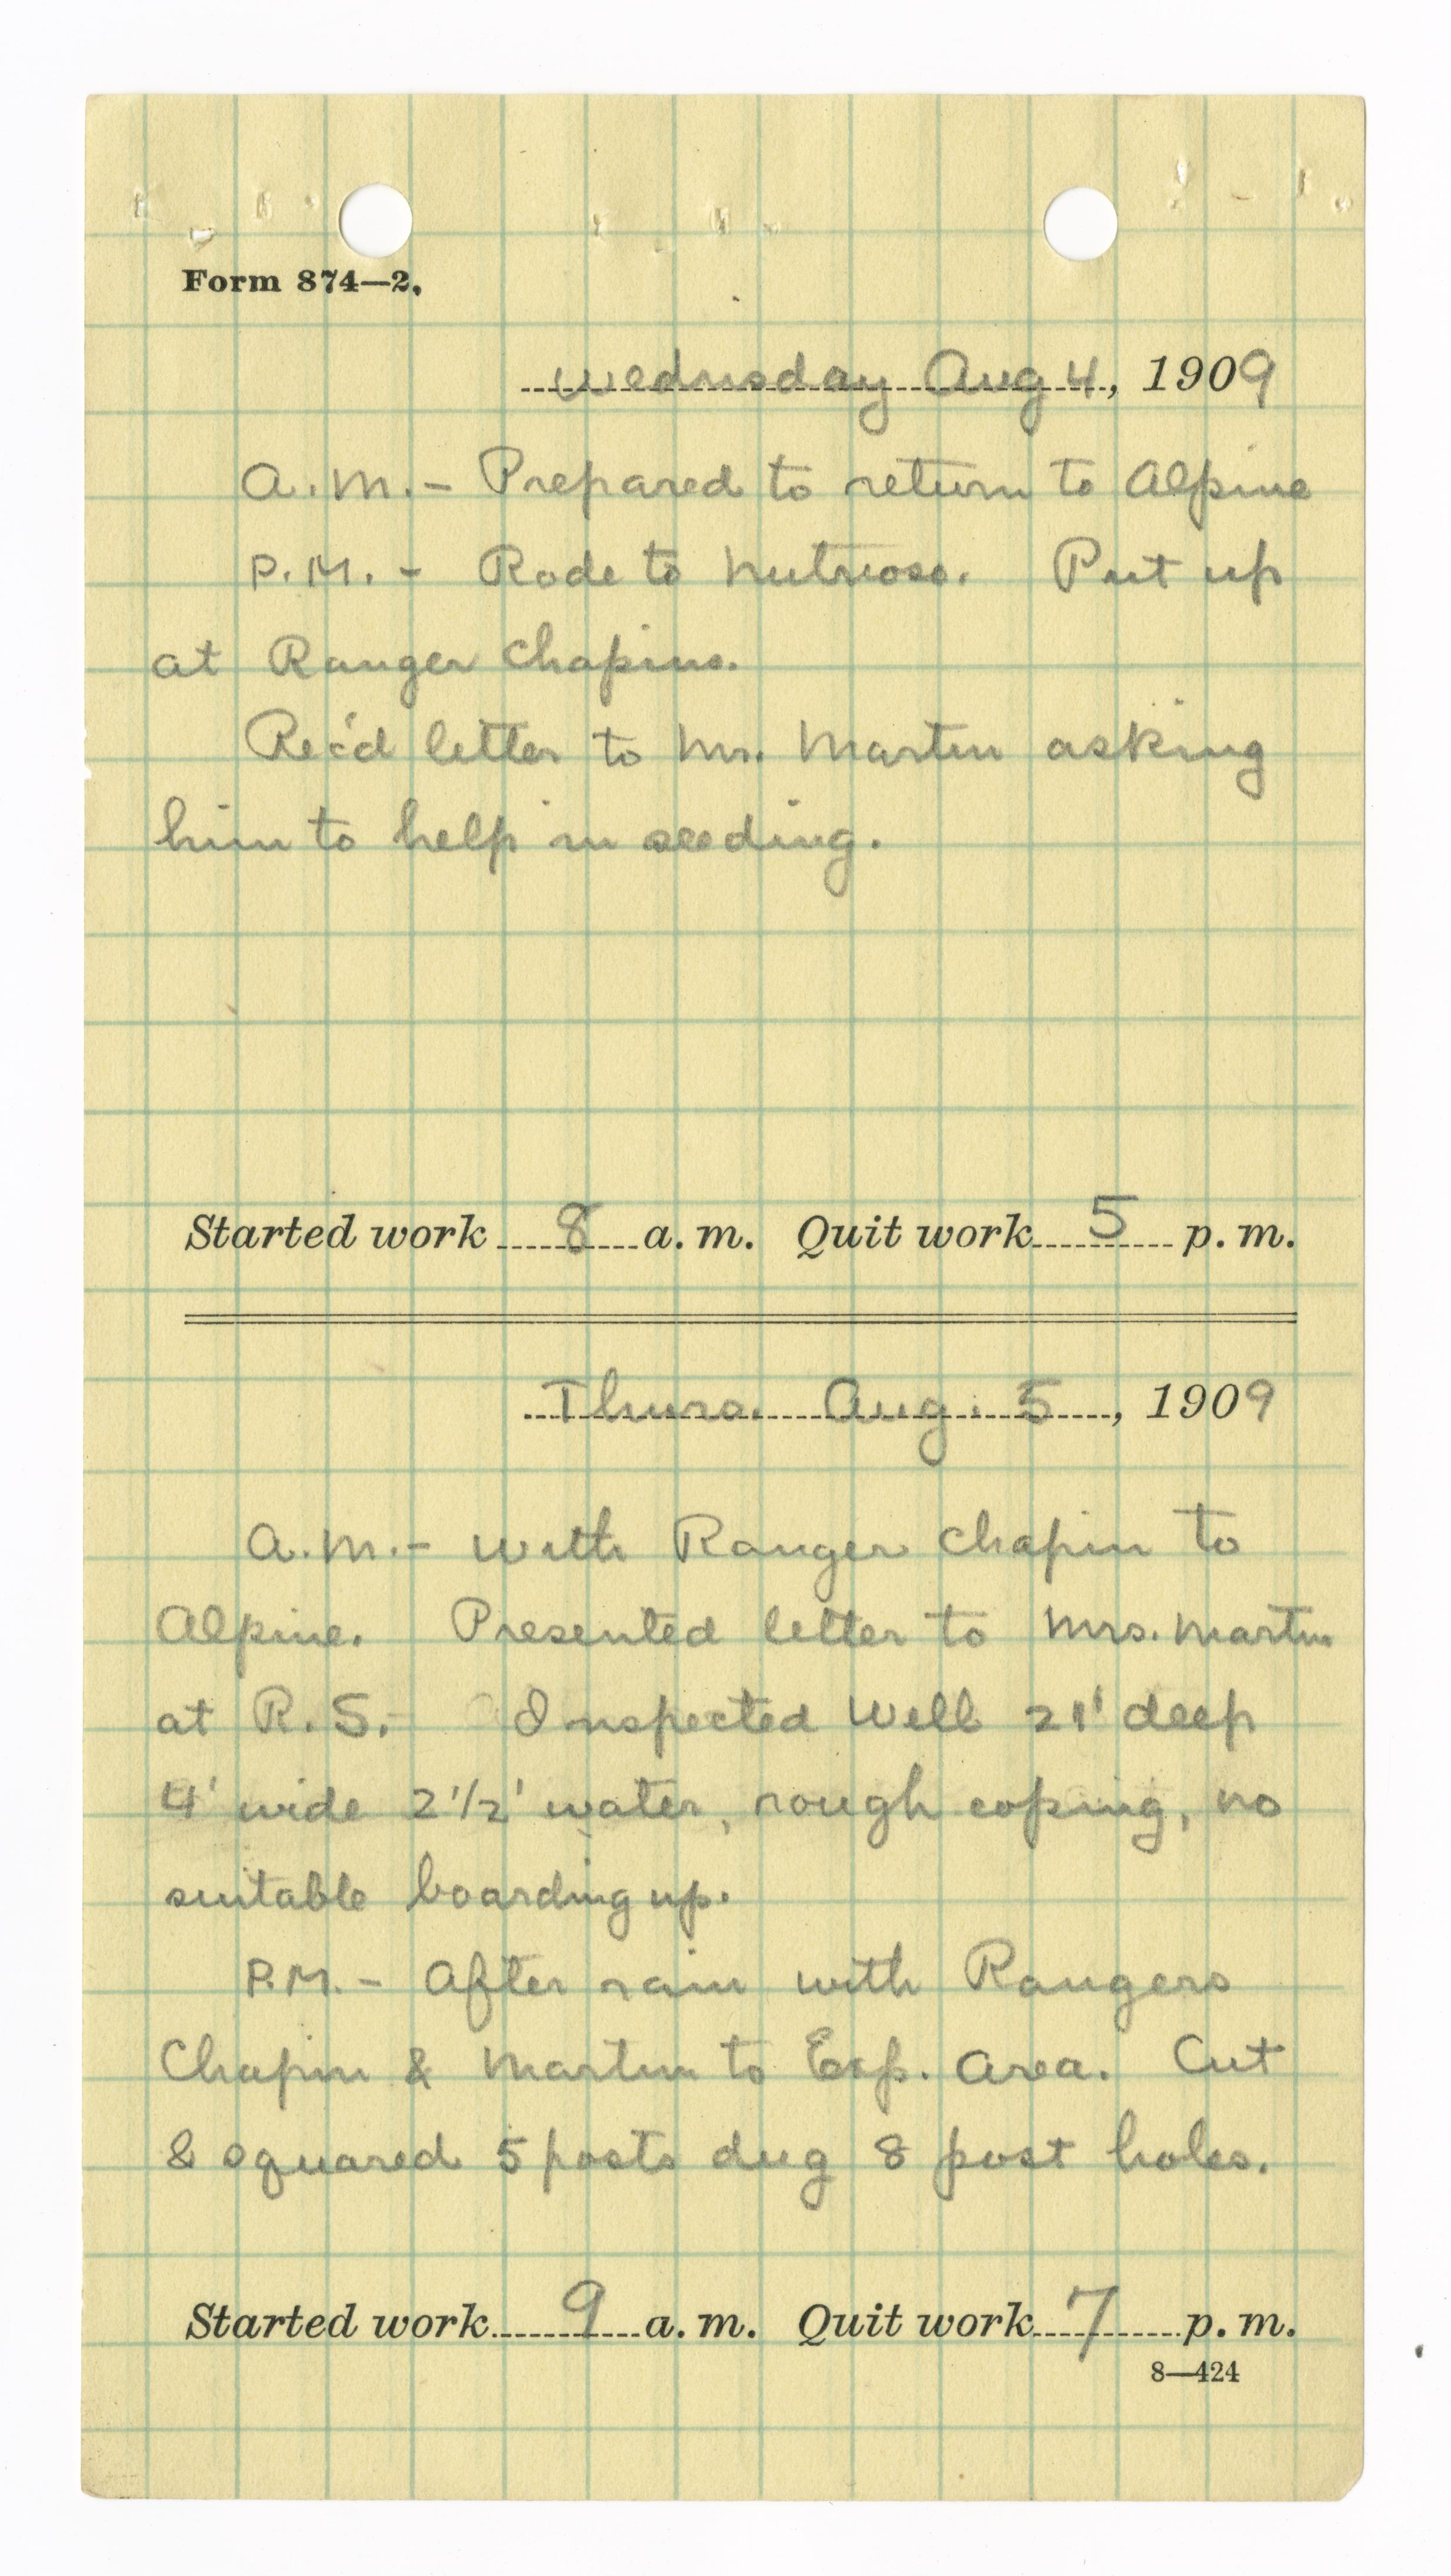 Form 874—2.
Wednesday Aug 4, 1909
A.M.- Prepared to return to Alpine
P.M. - Rode to Nutrioso. Put up
at Ranger Chapins.
Rec'd letter to Mr. Martin asking
him to help in seeding.
Started work 8 a.m. Quit work 5 p.m.
Thurs. Aug. 5, 1909
A.M.- with Ranger Chapin to
Alpine. Presented letter to Mrs. Martin
at R.S.- Inspected Well 21' deep
4' wide 2 1/2' water, rough coping, no
suitable boarding up.
P.M. - After rain with Rangers
Chapin & Martin to Exp. Area. Cut
& squared 5 posts dug 8 post holes.
Started work 9 a.m. Quit work 7 p.m.
8—424